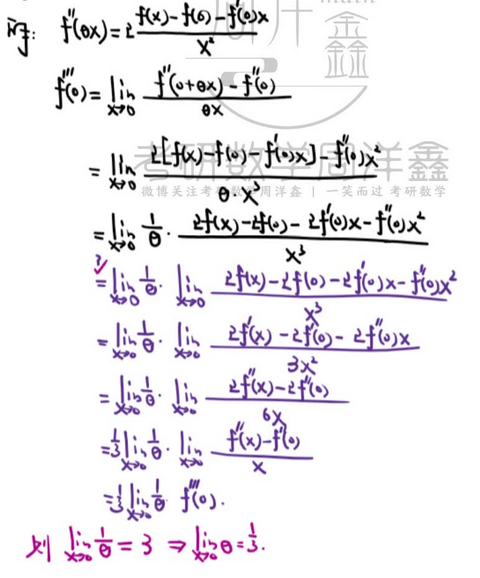 解: f''(θx)=2 \frac{f(x)-f(0)-f'(0)x}{x²}
f'''(0)=\lim_{x→0} \frac{f''(0+θx)-f''(0)}{θx}
=\lim_{x→0} \frac{2[f(x)-f(0)-f'(0)x]-f''(0)x²}{θ·x³}
考研数学周洋鑫
微博关注考研数学周洋鑫 | 一笑而过 考研数学
=\lim_{x→0} \frac{1}{θ}·\frac{2f(x)-2f(0)-2f'(0)x-f''(0)x²}{x³}
?
=\lim_{x→0} \frac{1}{θ}·\lim_{x→0} \frac{2f(x)-2f(0)-2f'(0)x-f''(0)x²}{x³}
=\lim_{x→0} \frac{1}{θ}·\lim_{x→0} \frac{2f'(x)-2f'(0)-2f''(0)x}{3x²}
=\lim_{x→0} \frac{1}{θ}·\lim_{x→0} \frac{2f''(x)-2f''(0)}{6x}
=\frac{1}{3}\lim_{x→0} \frac{1}{θ}·\lim_{x→0} \frac{f''(x)-f''(0)}{x}
=\frac{1}{3}\lim_{x→0} \frac{1}{θ} f'''(0).
则 \lim_{x→0} \frac{1}{θ}=3 ⇒ \lim_{x→0} θ=\frac{1}{3}.